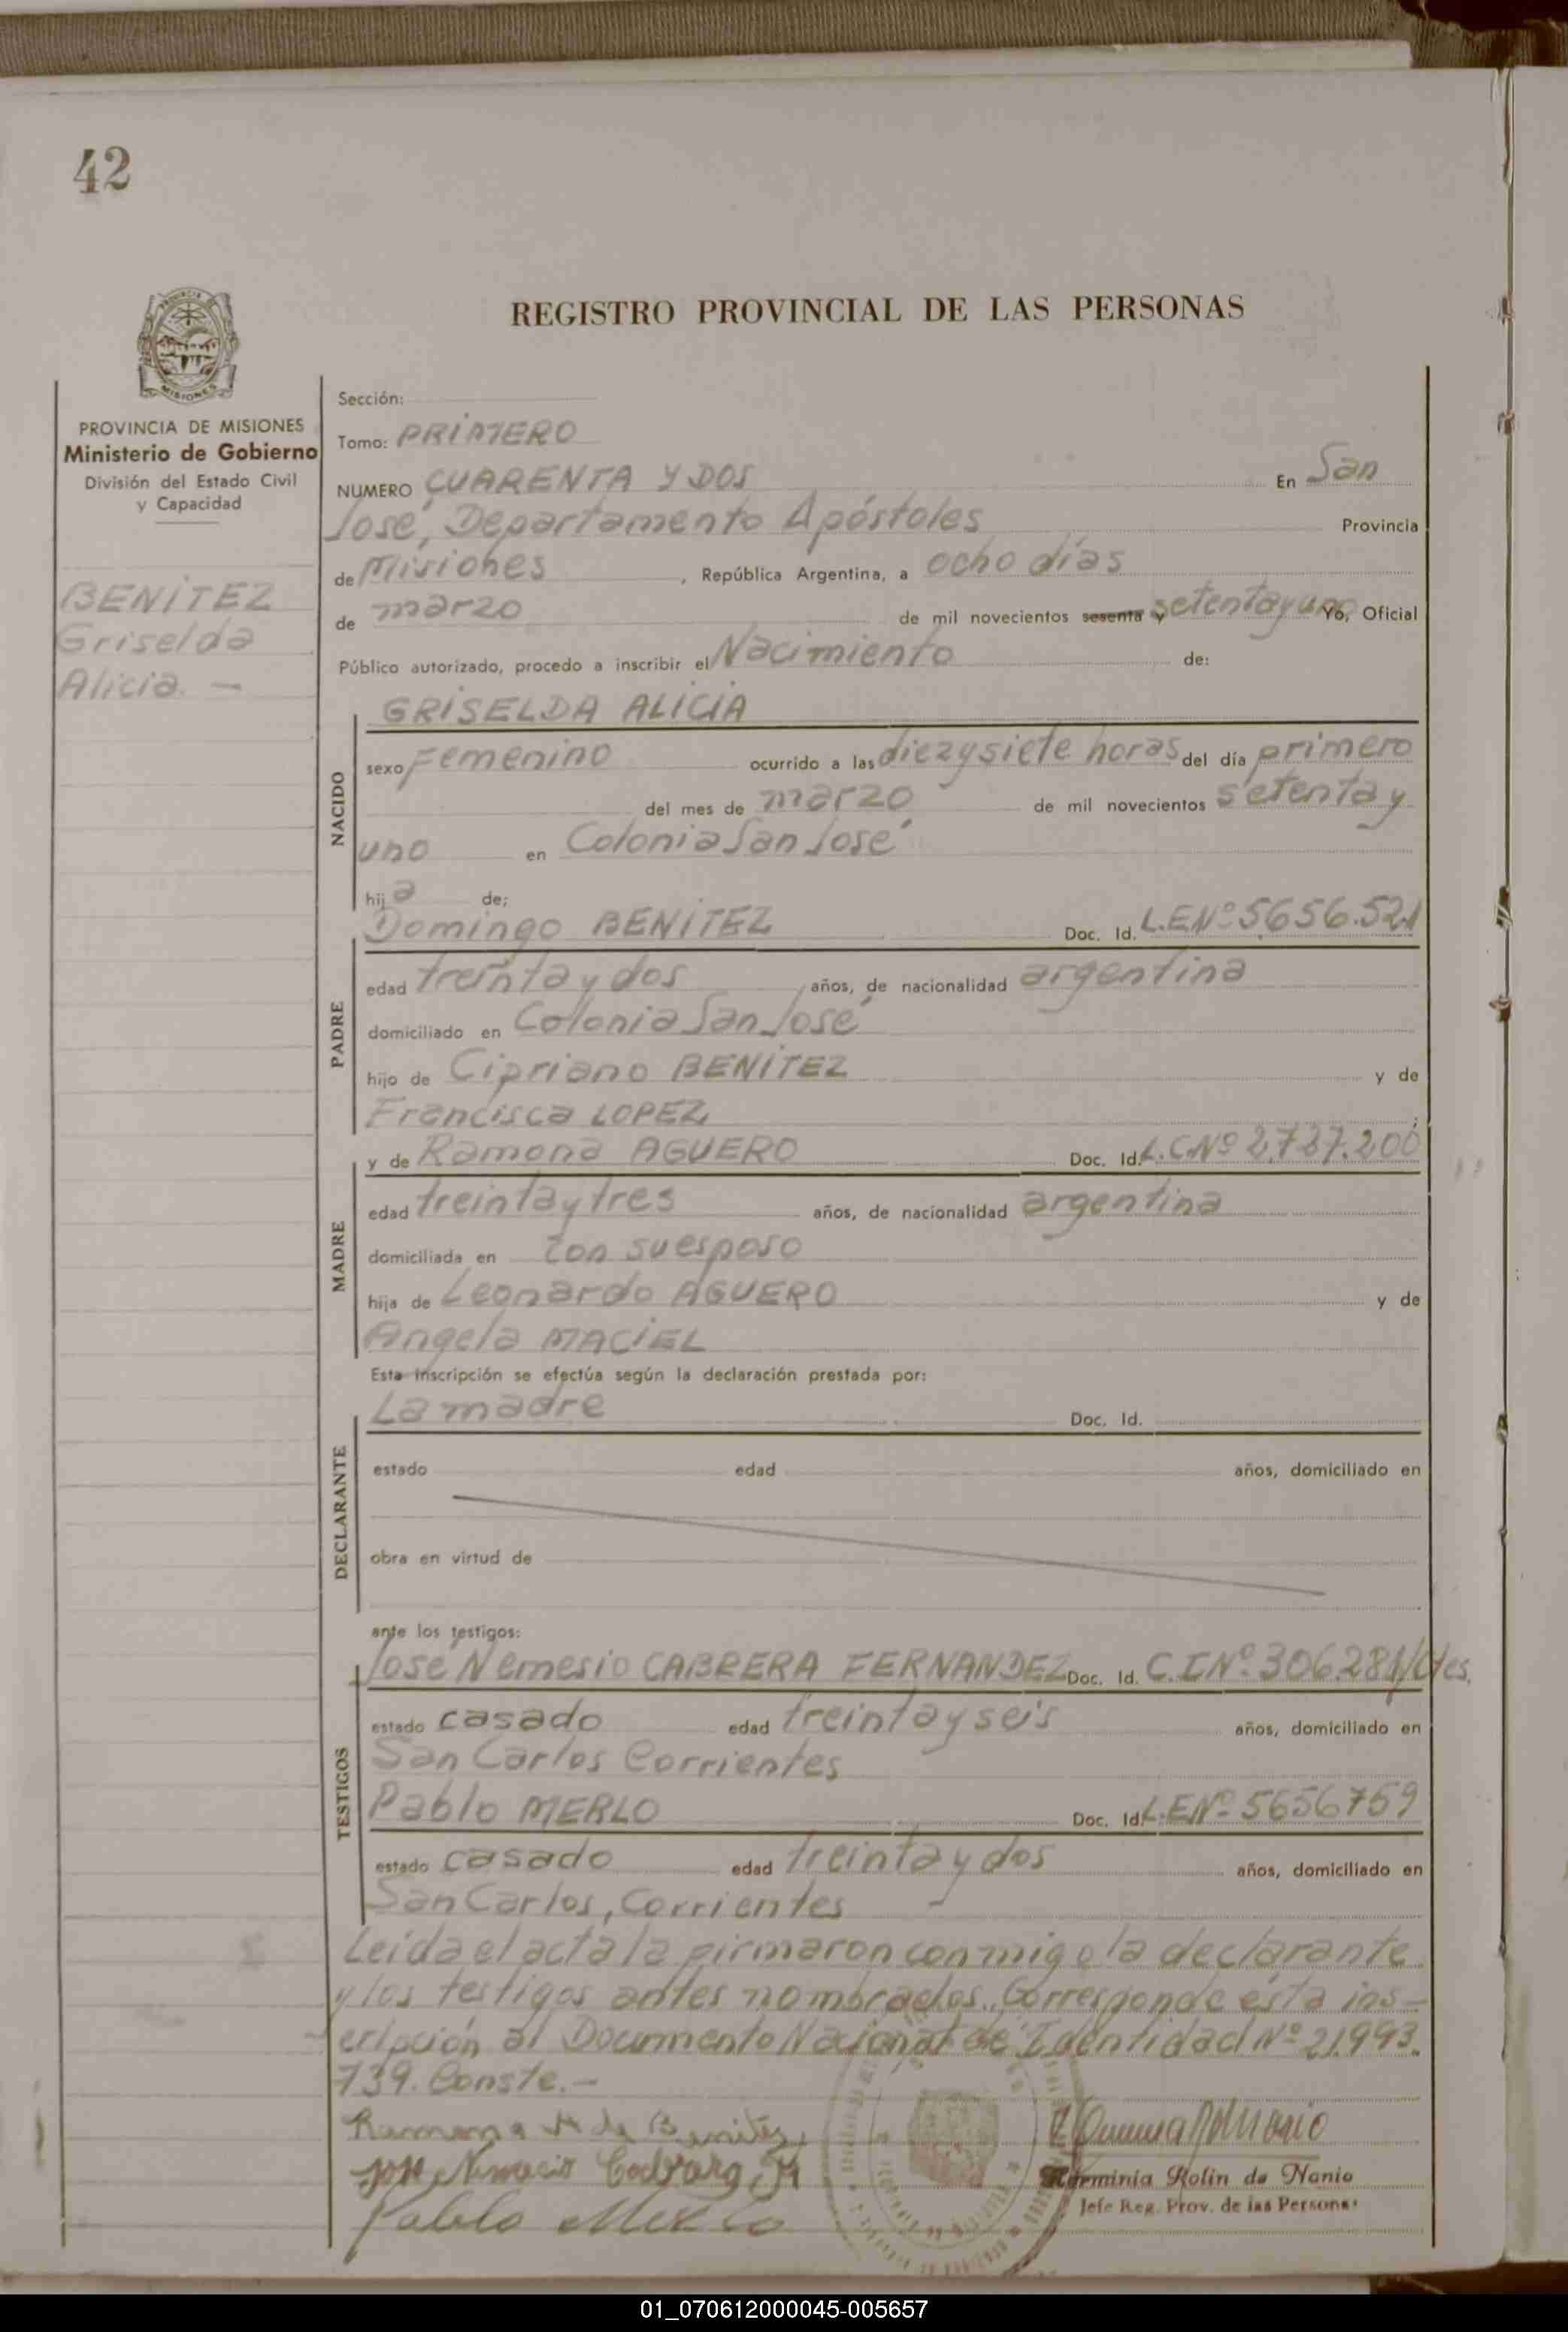 42
REGISTRO PROVINCIAL DE LAS PERSONAS
MISIONES
PROVINCIA DE MISIONES
Ministerio de Gobierno
División del Estado Civil
y Capacidad
BENITEZ
Griselda
Alicia. —
Sección:
Tomo: PRIMERO
NUMERO CUARENTA Y DOS En San
José, Departamento Apóstoles Provincia
de Misiones, República Argentina, a ocho días
de marzo de mil novecientos sesenta y setenta y uno Yo, Oficial
Público autorizado, procedo a inscribir el Nacimiento de:
GRISELDA ALICIA
NACIDO
sexo Femenino ocurrido a las diez y siete horas del día primero
del mes de marzo de mil novecientos setenta y
uno en Colonia San José
hija de;
Domingo BENITEZ Doc. Id. L.E Nº 5656.521
PADRE
edad treinta y dos años, de nacionalidad argentina
domiciliado en Colonia San José
hijo de Cipriano BENITEZ y de
Francisca LOPEZ
y de Ramona AGUERO Doc. Id. L.C Nº 2.737.200
MADRE
edad treinta y tres años, de nacionalidad argentina
domiciliada en con su esposo
hija de Leonardo AGUERO y de
Angela MACIEL
Esta inscripción se efectúa según la declaración prestada por:
La madre Doc. Id.
DECLARANTE
estado edad años, domiciliado en
obra en virtud de
ante los testigos:
José Nemesio CABRERA FERNANDEZ Doc. Id. C.I Nº 306.281/Ctes.
TESTIGOS
estado casado edad treinta y seis años, domiciliado en
San Carlos Corrientes
Pablo MERLO Doc. Id. L.E Nº 5656759
estado casado edad treinta y dos años, domiciliado en
San Carlos, Corrientes
Leída el acta la firmaron conmigo la declarante
y los testigos antes nombrados. Corresponde esta ins-
cripción al Documento Nacional de Identidad Nº 21.993.
739. Conste.-
Ramona A de Benitez
Pablo Merlo
Herminia Rolin de Nanio
Jefe Reg. Prov. de las Personas
01_070612000045-005657